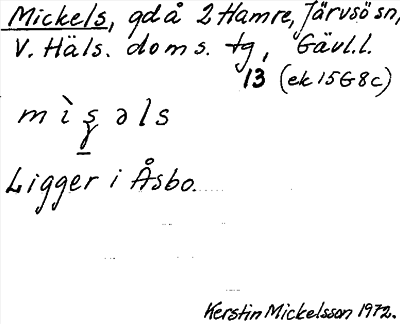 Mickels, gd å 2 Hamre, Järvsö sn,
V. Häls. doms. tg, Gävl.l.
13 (ek 15G8c)
əls
Ligger i Åsbo.
Kerstin Mickelsson 1972.